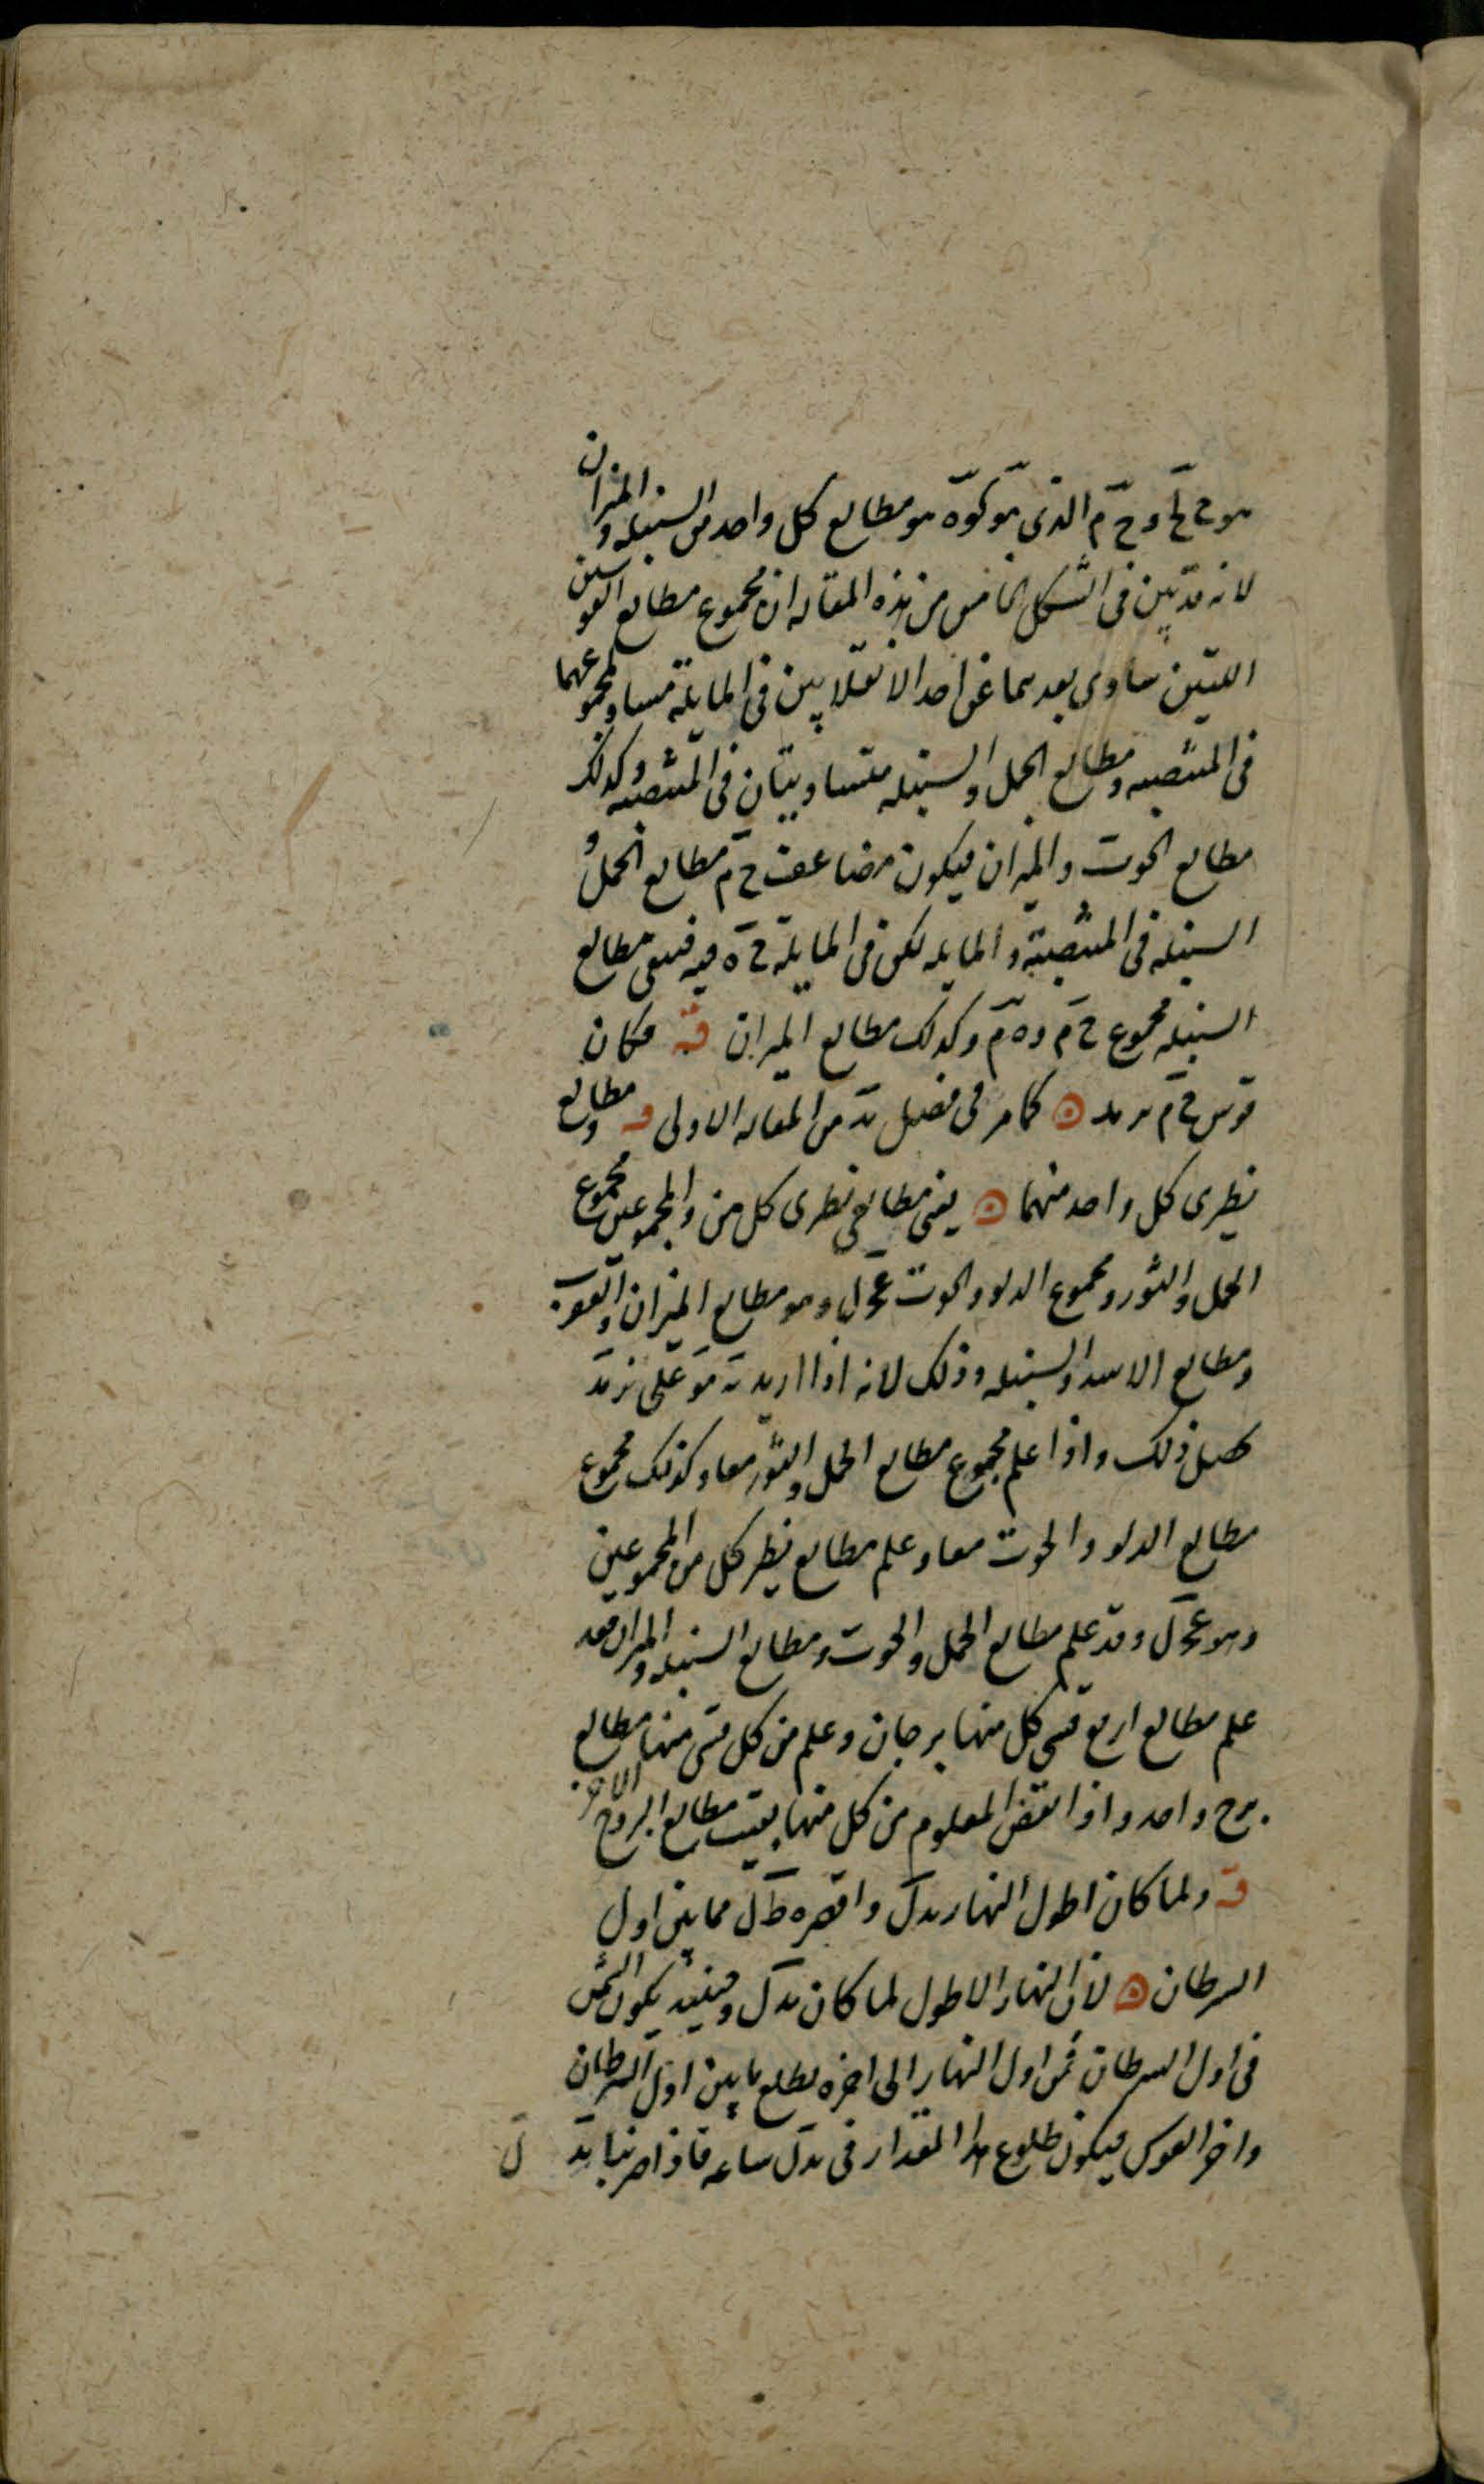 هو ح لح و ح م الذى هو كو ه هو مطالع كل واحد من السنبله والميزان
لانه قد تبين فى الشكل الخامس من هذه المقاله ان مجموع مطالع القوسين
اللتين تساوى بعدهما عن احد الانقلابين فى المايلة مساو لمجموعهما
فى المنتصبه ومطالع الحمل والسنبله متساويتان فى المنتصبه وكذلك
مطالع الحوت والميزان فيكون مضاعف ح م مطالع الحمل و
السنبله فى المنتصبة والمايله لكن فى المايلة ح ه فيه فيبقى مطالع
السنبله مجموع ح م و ه م وكذلك مطالع الميزان قه فكان
قوس ح م نر مد ۞ كما مر فى فصل ىد من المقاله الاولى قه ومطالع
نظيرى كل واحد منهما ۞ يعنى مطالعى نظيرى كل من المجموعين مجموع
الحمل والثور ومجموع الدلو والحوت عحل وهو مطالع الميزان والعقرب
ومطالع الاسد والسنبله وذلك لانه اذا اريد ىه مو على نر مد
حصل ذلك واذا علم مجموع مطالع الحمل والثور معا وكذلك مجموع
مطالع الدلو والحوت معا وعلم مطالع نظير كل من المجموعين
وهو عحل وقد علم مطالع الحمل والحوت ومطالع السنبله والميزان فقد
علم مطالع اربع قسى كل منها برجان وعلم من كل قسى منها مطالع
برج واحد واذا نقض المعلوم من كل منها بقيت مطالع البروج الاخر
قه ولما كان اطول النهار ىد ل واقصره ط ل فما بين اول
السرطان ۞ لان النهار الاطول لما كان ىد ل وحينئذ يكون الشمس
فى اول السرطان فمن اول النهار الى اخره يطلع ما بين اول السرطان
واخر القوس فيكون طلوع هذا المقدار فى ىد ل ساعه فاذا ضربنا ىد ل